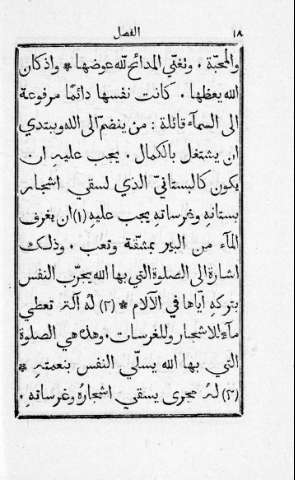 ١٨ الفصل
والمحبّة . وتغنّي المدائح للّه عوضها * واذ كان
الله يعظها . كانت نفسها دائمًا مرفوعة
الى السمآء قائلة : من ينضمّ الى الله ويبتدي
ان يشتغل بالكمال . يجب عليهِ ان
يكون كالبستانيّ الذي لسقي اشجار
بستانهِ وغرساتهِ يجب عليهِ (١) ان يغرف
المآء من البير بمشقّة وتعب . وذلك
اشارة الى الصلوة التي بها الله يجرّب النفس
بتركهِ آياها في الآلام * (٢) لهُ آلة تعطي
مآء للاشجار وللغرسات . وهذه هي الصلوة
التي بها الله يسلّي النفس بنعمتهِ *
(٣) لهُ مجرى يسقي اشجارهُ وغرساتهِ .